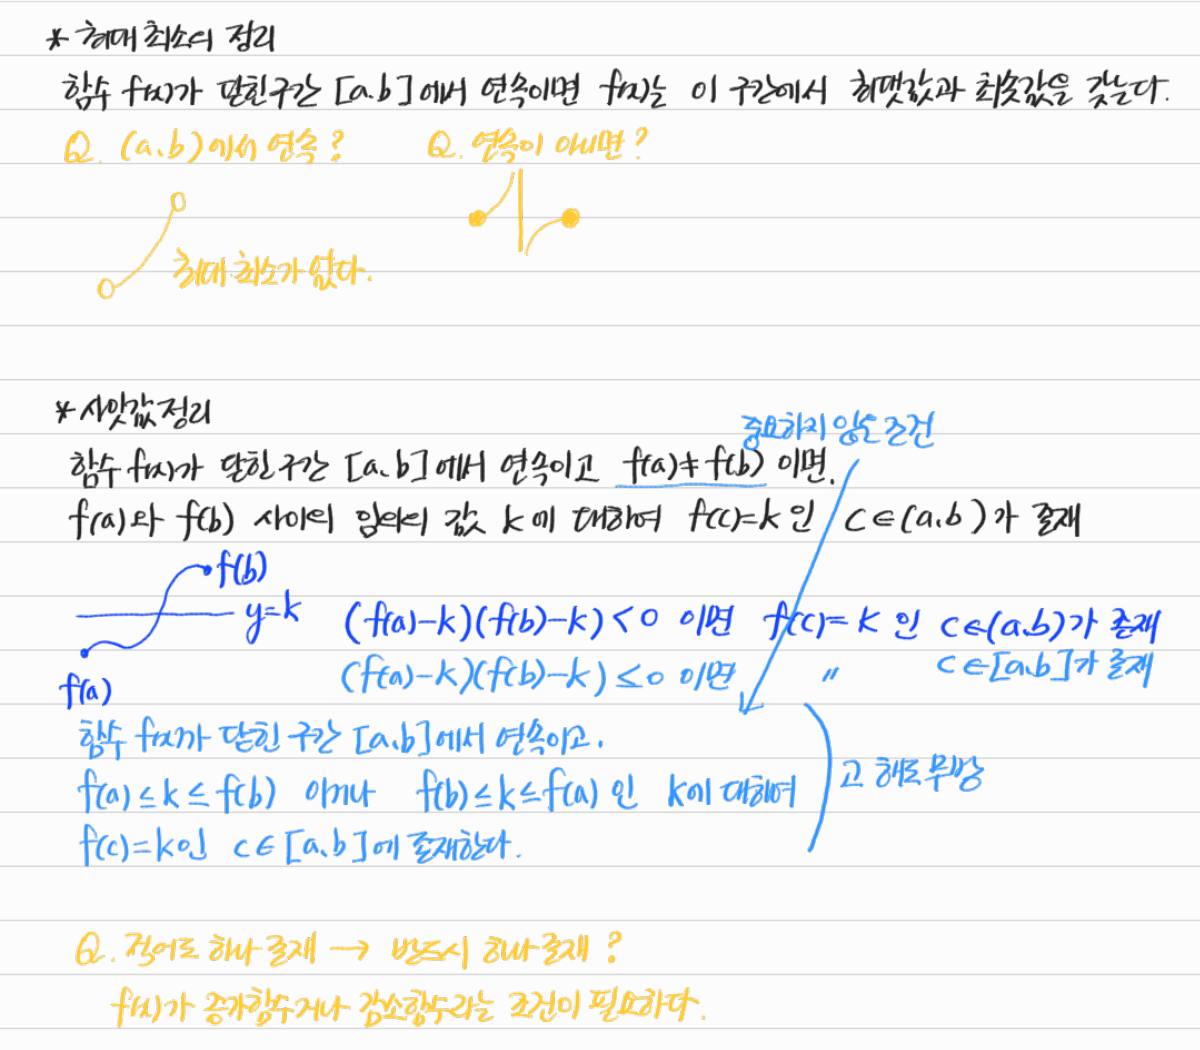 * 최대 최소의 정리
함수 f(x)가 닫힌구간 [a.b]에서 연속이면 f(x)는 이 구간에서 최댓값과 최솟값을 갖는다.
Q. (a.b)에서 연속? Q. 연속이 아니면?
최대 최소가 없다.
* 사잇값 정리
중요하지 않은 조건
함수 f(x)가 닫힌구간 [a.b]에서 연속이고 f(a)≠f(b) 이면.
f(a)와 f(b) 사이의 임의의 값 k에 대하여 f(c)=k 인 c∈(a.b)가 존재
f(b)
y=k (f(a)-k)(f(b)-k)<0 이면 f(c)=k 인 c∈(a.b)가 존재
f(a) (f(a)-k)(f(b)-k)≤0 이면 〃 c∈[a.b]가 존재
함수 f(x)가 닫힌구간 [a.b]에서 연속이고.
f(a)≤k≤f(b) 이거나 f(b)≤k≤f(a) 인 k에 대하여 고 해도 무방
f(c)=k인 c∈[a.b]에 존재한다.
Q. 적어도 하나 존재 → 반드시 하나 존재?
f(x)가 증가함수거나 감소함수라는 조건이 필요하다.